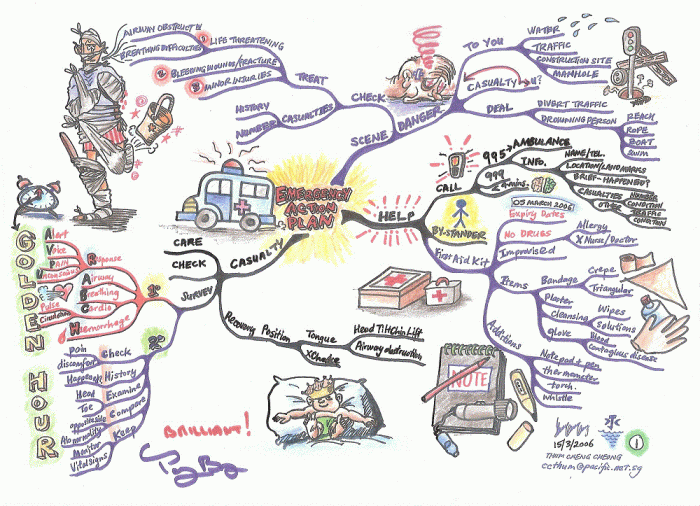 EMERGENCY
ACTION
PLAN
SCENE
CHECK
TREAT
AIRWAY OBSTRUCT
BREATHING DIFFICULTIES
LIFE THREATENING
BLEEDING WOUNDS/FRACTURE
MINOR INJURIES
CASUALTIES
HISTORY
NUMBER
DANGER
TO YOU
WATER
TRAFFIC
CONSTRUCTION SITE
MANHOLE
CASUALTY
U?
DEAL
DIVERT TRAFFIC
DROWNING PERSON
REACH
ROPE
BOAT
SWIM
HELP
CALL
995 AMBULANCE
999
INFO.
NAME/TEL.
LOCATION/LANDMARKS
BRIEF-HAPPENED?
CASUALTIES
NUMBER
CONDITION
OTHER
TRAFFIC
CONDITION
BY-STANDER
First Aid Kit
05 MARCH 2006
Expiry Dates
NO DRUGS
Allergy
X Nurse/Doctor
Improvised
Items
Bandage
Crepe
Triangular
Plaster
Cleansing
Wipes
Solutions
Glove
Blood
Contagious disease
Additions
Note pad + pen
thermometer
torch
whistle
NOTE
CASUALTY
CARE
CHECK
SURVEY
Recovery Position
Tongue
Head Tilt Chin Lift
X Choke
Airway obstruction
GOLDEN HOUR
Alert
Voice
PAIN
Unconscious
Response
Airway
Breathing
Cardio
Pulse
Circulation
Haemorrhage
Check
pain
discomfort
History
Happened
Examine
Head
Toe
Compare
opposite side
Abnormality
Keep
Monitor
Vital signs
BRILLIANT!
15/3/2006
THUM CHENG CHEONG
ccthum@pacific.net.sg